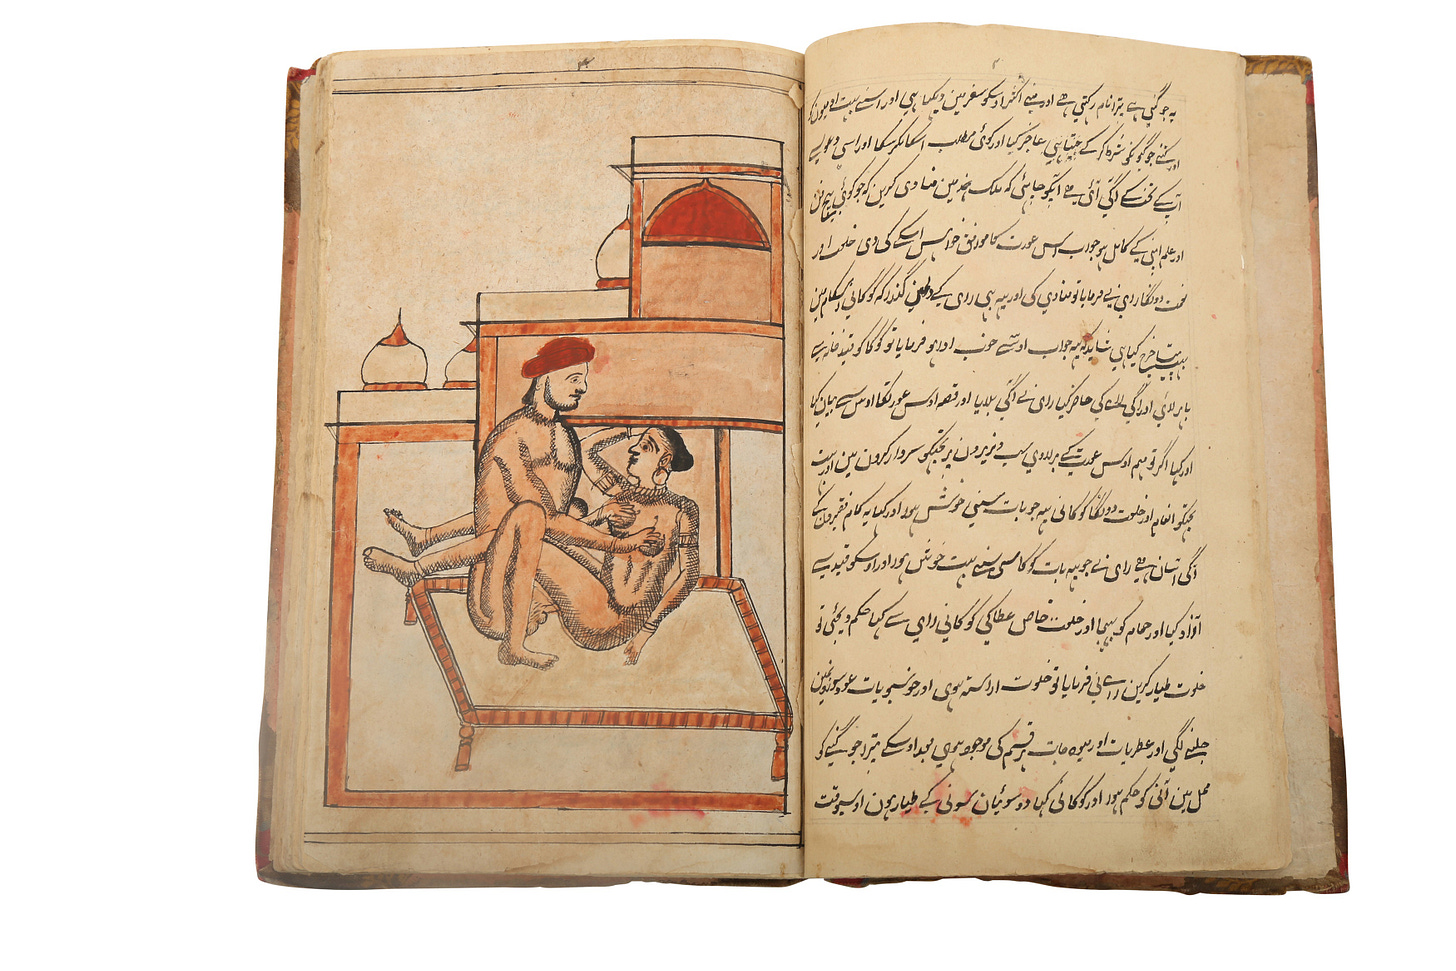 یہ جوگنی ہے میترا نام رکہتی ہے اور مینے اکثر اوسکو سفر مین دیکہا ہی اور اسنے بہت
اور کتنے عاجز کیا اور کوئی مطلب اسکا نکر سکا اور اسی دعویسے
آپکے تخت کے آگی آئی ہے آپکو چاہئی کہ ملک مین منادی کرین کہ جو کوئی
اور علم اپنی کے کامل ہو جواب اس عورت کا موافق خواہس اسکے کی دی خلعت اور
دونگا رای نے فرمایا تو منادی کی اور یہہ ہی رای کے دلمین گذرا کہ کوکانی اس کام مین
بہت خرچ کیا ہی شاید کہ یہ جواب اوسسے خوب ادا ہو فرمایا تو کوکا کو قید خانہ سے
باہر لائی اور آگی رای کی حاضر کیا رای نے آگی بلایا اور قصہ اوس عورتکا اوس سے بیان کیا
اور کہا اگر تو مہم اوس عورت کے بر لاوی سب وزیرون پر تجکو سردار کرون مین اور بہت
تجکو انعام اور خلعت دونگا کوکانی یہہ جو بات سنی خوش ہوا اور کہا یہ کام فقیرون کے
آگی آسان ہے رای نے جو یہہ بات کوکا سی سنی بہت خوش ہوا اور اوسکو قید سے
آزاد کیا اور حمام کو بہیجا اور خلعت خاص عطا کی کوکانی رای سے کہا حکم دیجئی تو
خلوت طیار کرین رای نی فرمایا تو خلوت اراستہ ہوی اور خوشبویات عود سوزونمین
جلنے لگی اور عطریات اور میوہ جات ہر قسم کی موجود ہوی بعد اوسکے میترا جوگنی کو
محل مین آنی کو حکم ہوا اور کوکانی کہا دو سوئیان سونی کے طیار ہون اوسیوقت